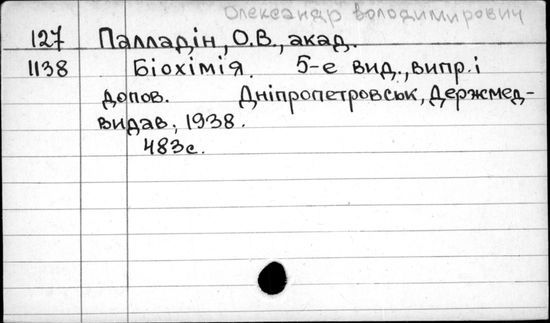 Олександр Володимирович
127 Палладін, О.В., акад.
1138 Біохімія. 5-е вид., випр. і
допов. Дніпропетровськ, Держмед-
видав, 1938.
483с.